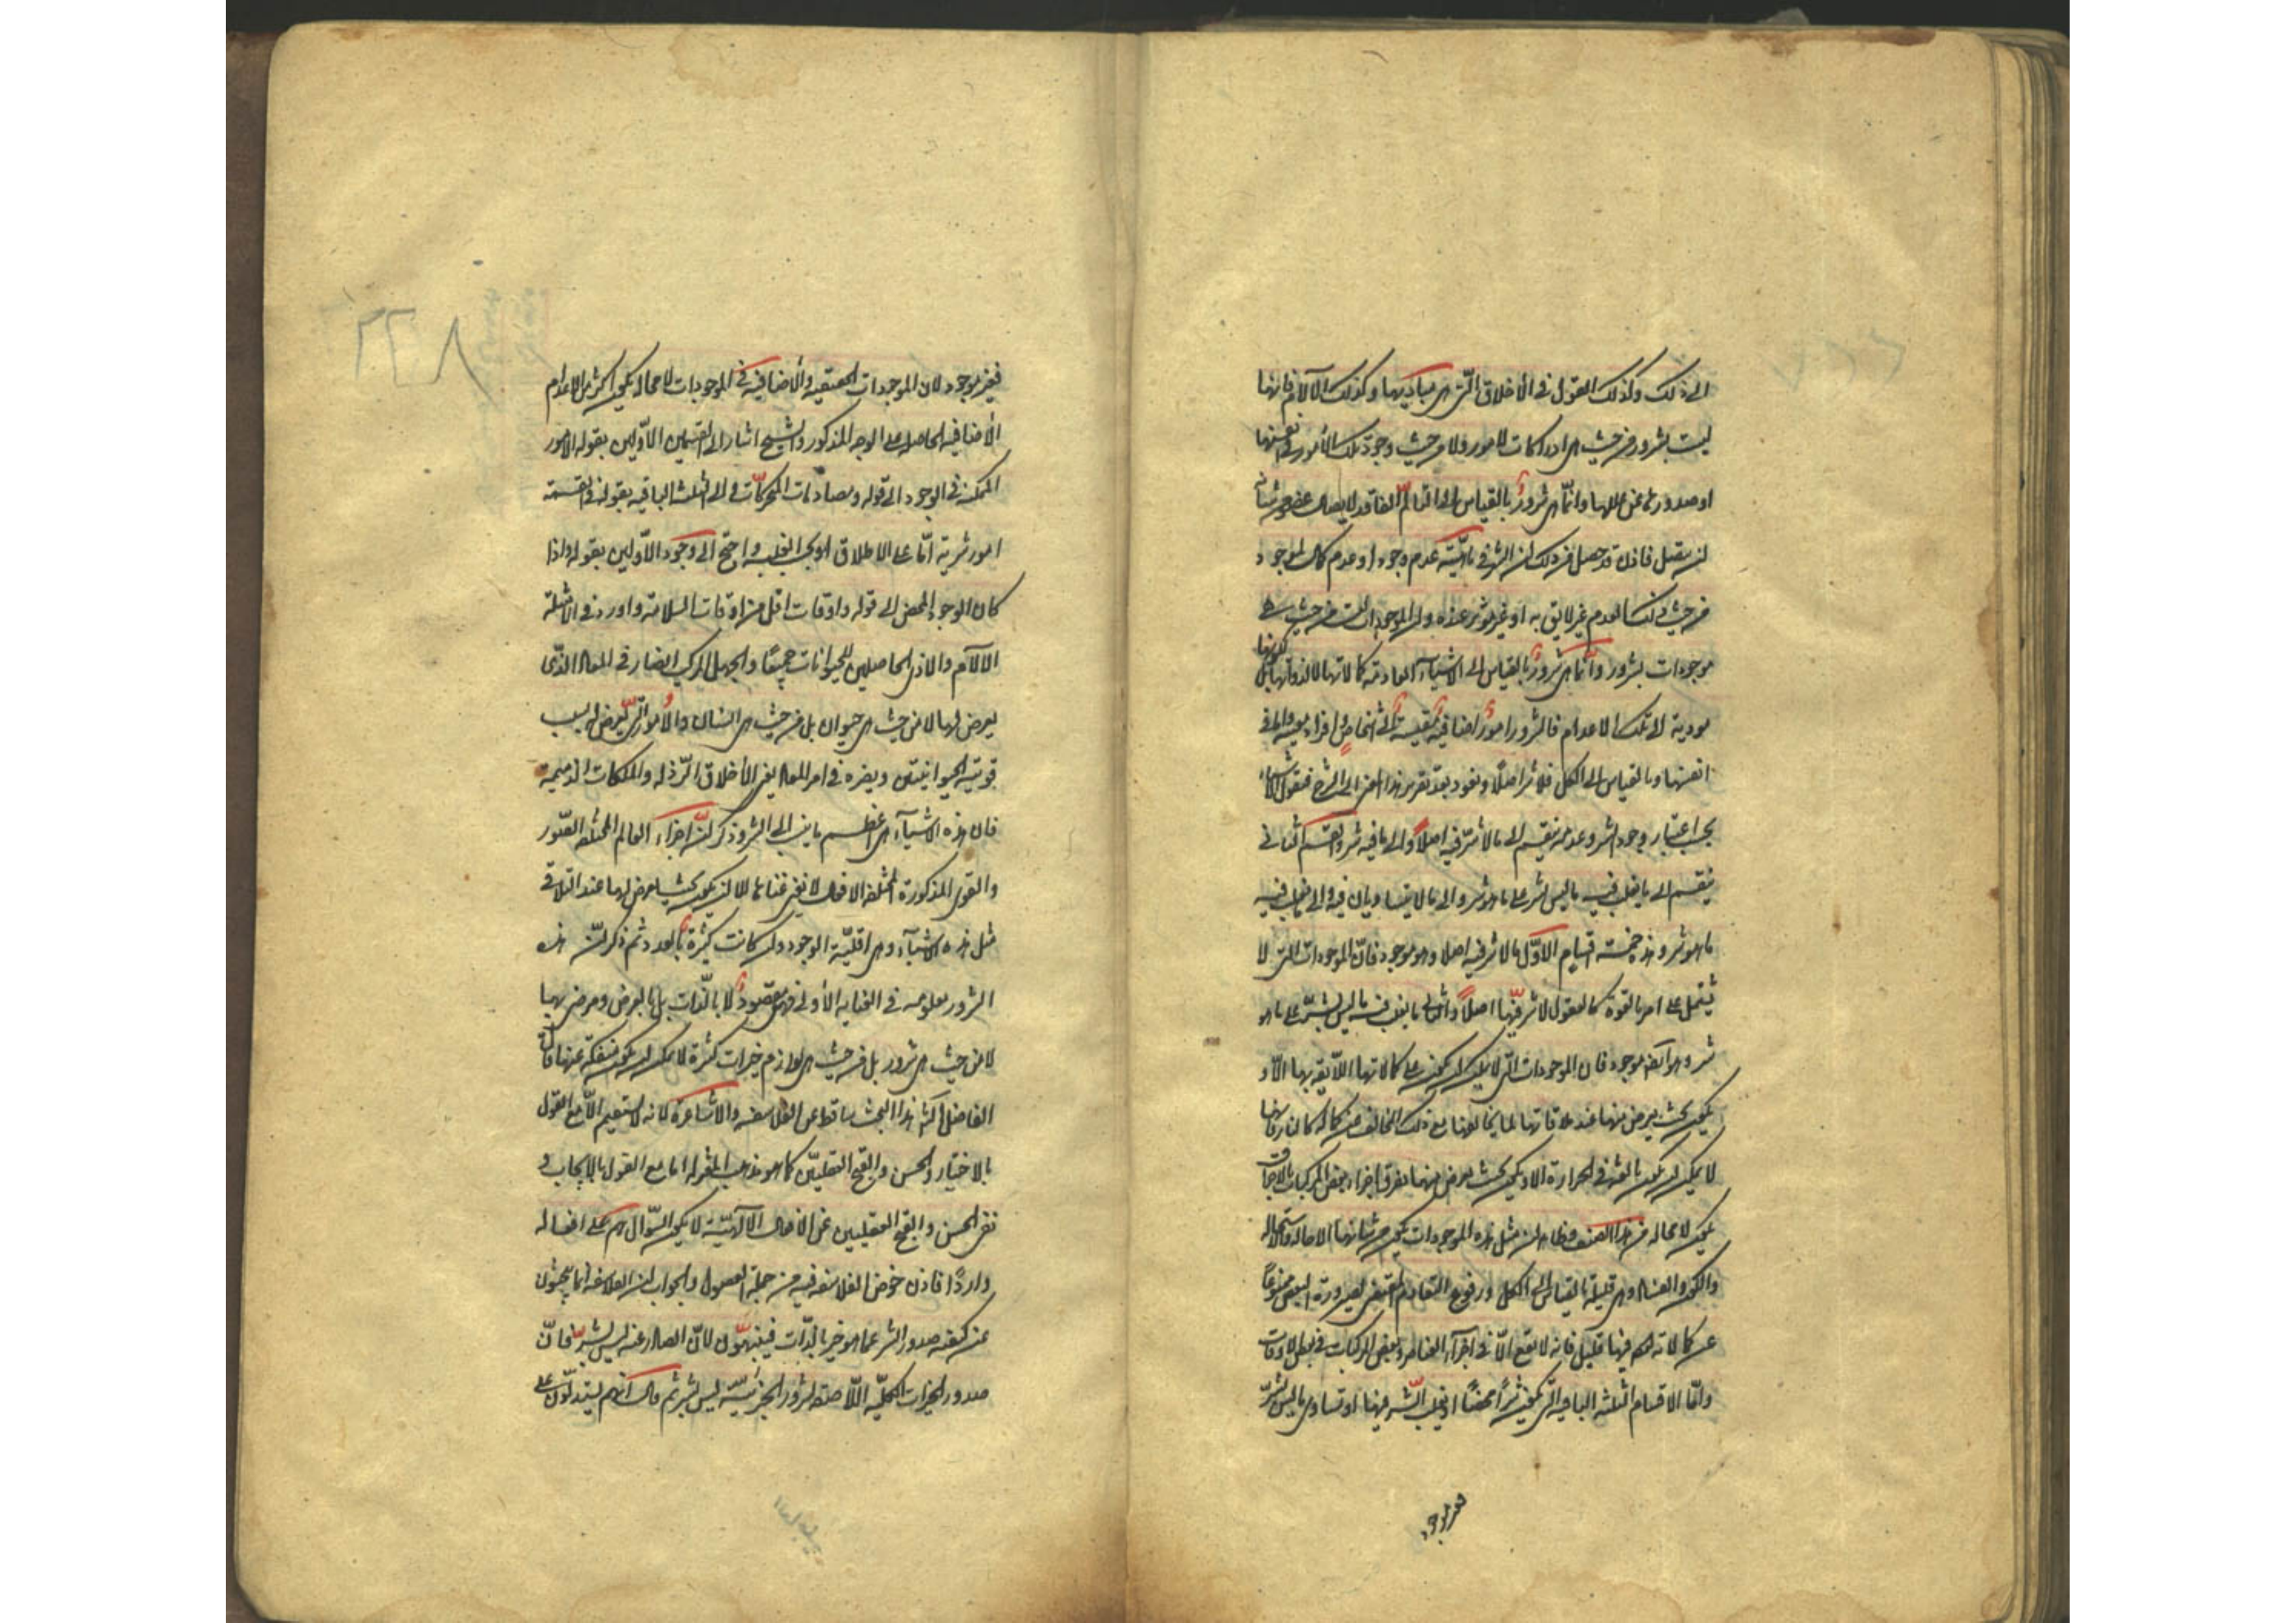 الى ذلك وكذلك القول فى الأخلاق التى هى مباديها وكذلك الآلام فانها
ليست بشرور من حيث هى ادراكات لامور ولا من حيث وجود تلك الأمور فى نفسها
او صدورها عن عللها وانما هى شرور بالقياس الى المتألم الفاقد لاتصال عضو من شأنه
ان يتصل فاذن قد حصل من ذلك ان الشر فى ماهيته عدم وجود او عدم كمال لموجود
من حيث ان ذلك العدم غير لايق به او غير مؤثر عنده وان الموجودات ليست من حيث هى
موجودات بشرور وانما هى شرور بالقياس الى الاشياء العادمة كمالاتها لا لذواتها بل لكونها
مودية الى تلك الاعدام فالشرور امور اضافية مقيسة الى اشخاص وافراد معينة واما فى
انفسها وبالقياس الى الكل فلا شر اصلا ونعود بعد تقرير هذا المعنى الى الشرح فنقول الأشياء
بحسب اعتبار وجود الشر وعدمه ينقسم الى ما لا شر فيه اصلا والى ما فيه شر والقسم الثانى
ينقسم الى ما يغلب فيه ما ليس بشر على ما هو شر والى ما لا يتساويان فيه والى ما يغلب فيه
ما هو شر وهذه خمسة اقسام الأول ما لا شر فيه اصلا وهو موجود فان الموجودات التى لا
يشتمل على امر بالقوة كالعقول لا شر فيها اصلا والثانى ما يغلب فيه ما ليس بشر على ما هو
شر وهو ايضا موجود فان الموجودات التى لا يمكن ان يكون على كمالاتها اللايقة بها الا و
يكون بحيث يعرض منها عند ملاقاتها لما يخالفها منع ذلك المخالف من كماله كالنار فانها
لا يمكن ان يكون بالغة فى الحرارة الا ويكون بحيث يعرض منها تفرق اجزاء بعض المركبات بالاحراق
يكون لا محالة من هذا الصنف وظاهر ان مثل هذه الموجودات يكون من شانها الاحالة والاستحالة
والكون والفساد وهى قليلة بالقياس الى الكل ووقوع التقادم المقتضى لصيرورة البعض ممنوعا
عن كمالاته ايضا فيها قليل فانه لا يقع الا فى اجزاء العناصر وبعض المركبات فى بعض الاوقات
واما الاقسام الثلثة الباقية التى يكون شرا محضا او يغلب الشر فيها او تساوى ما ليس بشر
فغير موجود لان الموجودات الحقيقية والاضافية فى الموجودات لا محالة يكون اكثر من الاعدام
الأضافية الحاصلة على الوجه المذكور والشيخ اشار الى القسمين الأولين بقوله الامور
الممكنة فى الوجود الى قوله ومصادمات المتحركات والى الثلثة الباقية بقوله فى القسمة
امور شرية اما على الاطلاق او بحسب الغلبة واحتج الى وجود الأولين بقوله واذا
كان الوجود المحض الى قوله واوقات اقل من اوقات السلامة واورد فى الأمثلة
الآلام والاذى الحاصلين للحيوانات جميعا والجهل المركب الضار فى المعاد الذى
يعرض لها لا من حيث هى حيوان بل من حيث هى انسان والأمور التى تعرض له بسبب
قوتيه الحيوانيتين ويضره فى امر المعاد يعنى الأخلاق الرذلة والملكات الذميمة
فان هذه الاشياء هى اعظم ما ينسب الى الشر وذكر ان اجزاء العالم المختلفة الصور
والقوى المذكورة المختلفة الافعال لا تغنى غناءها الا ان يكون بحيث يعرض لها عند التلاقى
مثل هذه الاشياء وهى اقلية الوجود وان كانت كثيرة بالعدد ثم ذكر ان هذه
الشرور معلومة فى العناية الأولى فهى مقصودة لا بالذات بل بالعرض ومرضى بها
لا من حيث هى شرور بل من حيث هى لوازم خيرات كثيرة لا يمكن ان يكون منفكة عنها قال
الفاضل الشارح هذا البحث ساقط عن الفلاسفة والاشاعرة لانه لا يستقيم الا مع القول
بالاختيار والحسن والقبح العقليين كما هو مذهب المعتزلة اما مع القول بالايجاب و
نفى الحسن والقبح العقليين عن الافعال الالهية لا يكون السؤال بلم على افعاله
واردا فاذن خوض الفلاسفة فيه من جملة الفضول والجواب ان الفلاسفة انما يبحثون
عن كيفية صدور الشر عما هو خير بالذات فينبهون لان الصادر عنه ليس بشر فان
صدور الخيرات الكلية الملاصقة لشرور الجزئية ليس بشر ثم قال انهم يستدلون على